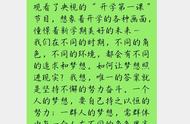 观看了央视的“开学第一课”
节目，想象看开学的各种画面，
憧憬着新学期美好的未来—
我们在不同的时期，不同的角
色，不同的环境，都会有不同
的追求和梦想。如何让梦想照
进现实？我想，唯一的答案就
是坚持不懈的努力奋斗。一个
人的梦想，要自己持之以恒的
努力；一群人的梦想，需群体